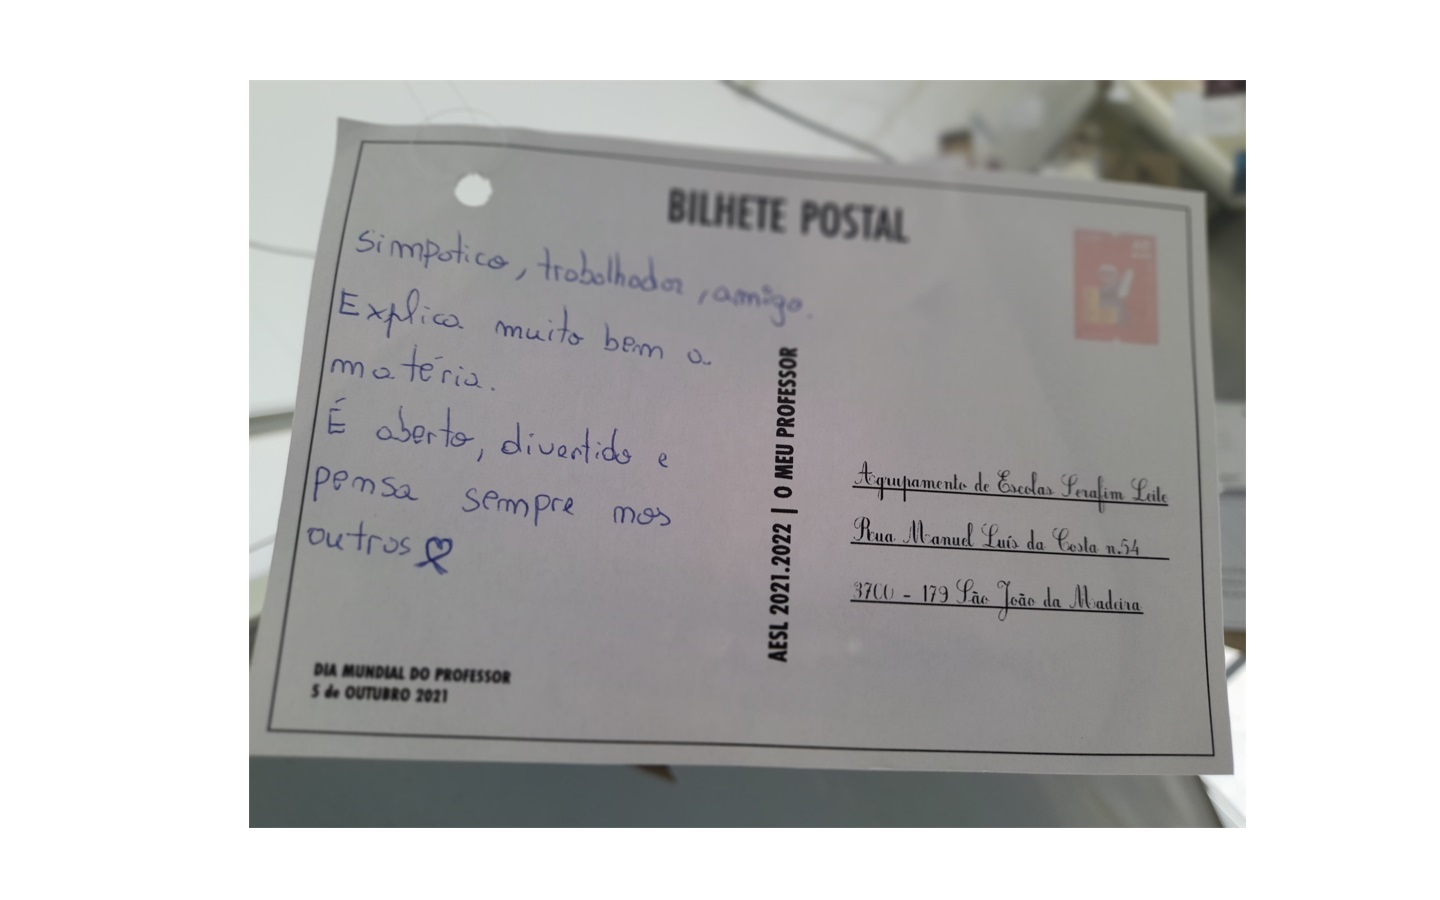 BILHETE POSTAL
simpatico, trabalhador, amigo.
Explica muito bem a
matéria.
É aberto, divertido e
pensa sempre nos
outros
DIA MUNDIAL DO PROFESSOR
5 de OUTUBRO 2021
AESL 2021.2022 | O MEU PROFESSOR
Agrupamento de Escolas Serafim Leite
Rua Manuel Luís da Costa n.54
3700 - 179 São João da Madeira